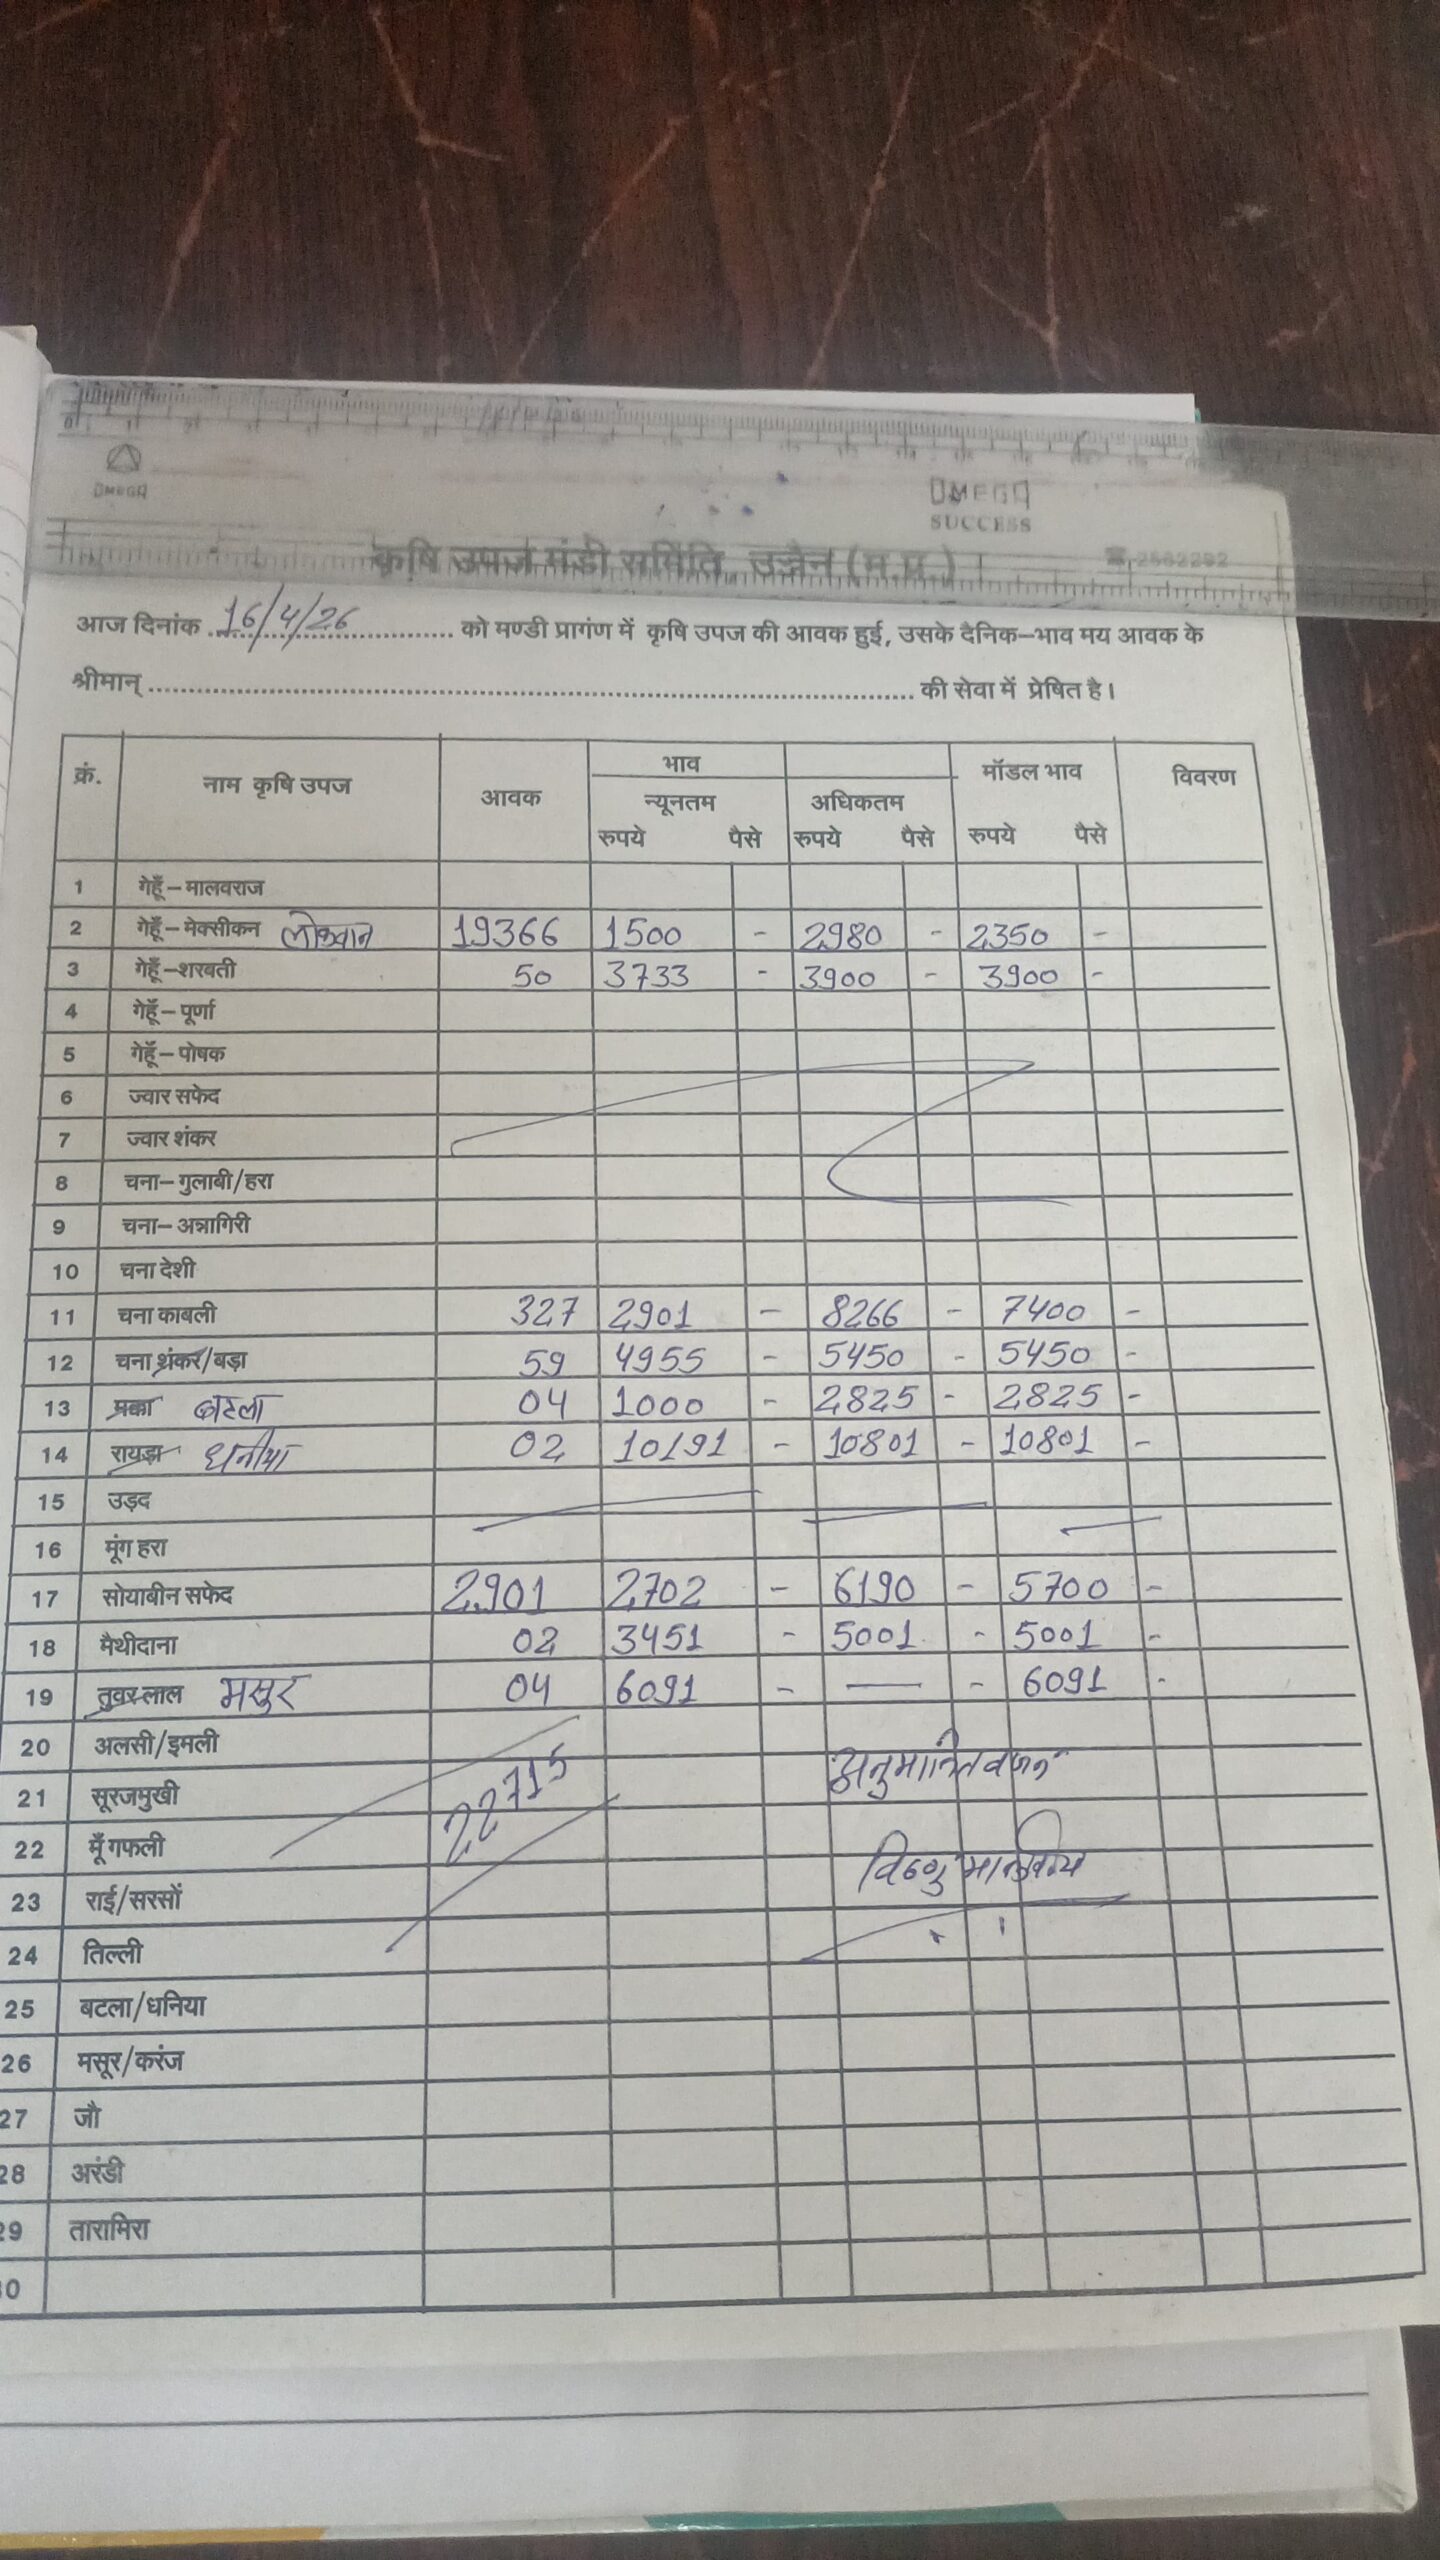 OMEGA
OMEGA
SUCCESS
कृषि उपज मंडी समिति, उज्जैन (म.प्र.) ☎ 2562292
आज दिनांक 16/4/26 को मण्डी प्रागंण में कृषि उपज की आवक हुई, उसके दैनिक–भाव मय आवक के
श्रीमान् की सेवा में प्रेषित है।
क्रं. नाम कृषि उपज आवक भाव मॉडल भाव विवरण
न्यूनतम अधिकतम
रुपये पैसे रुपये पैसे रुपये पैसे
1 गेहूँ–मालवराज
2 गेहूँ–मेक्सीकन लोकवान 19366 1500 - 2980 - 2350 -
3 गेहूँ–शरबती 50 3733 - 3900 - 3900 -
4 गेहूँ–पूर्णा
5 गेहूँ–पोषक
6 ज्वार सफेद
7 ज्वार शंकर
8 चना–गुलाबी/हरा
9 चना–अन्नागिरी
10 चना देशी
11 चना काबली 327 2901 - 8266 - 7400 -
12 चना शंकर/बड़ा 59 4955 - 5450 - 5450 -
13 मक्का बटला 04 1000 - 2825 - 2825 -
14 रायड़ा धनीया 02 10191 - 10801 - 10801 -
15 उड़द
16 मूंग हरा
17 सोयाबीन सफेद 2901 2702 - 6190 - 5700 -
18 मैथीदाना 02 3451 - 5001 - 5001 -
19 तुवर लाल मसुर 04 6091 - — - 6091 -
20 अलसी/इमली
21 सूरजमुखी 22715 अनुमानित वजन
22 मूँगफली
23 राई/सरसों विष्णु मालवीय
24 तिल्ली
25 बटला/धनिया
26 मसूर/करंज
27 जौ
28 अरंडी
29 तारामिरा
30